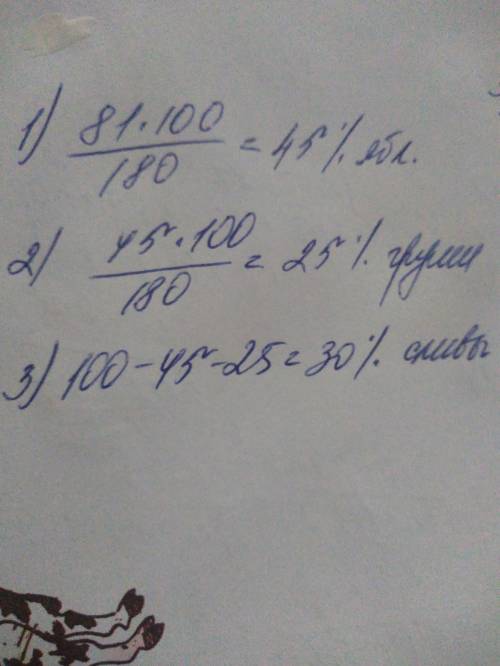 1) 81·100/180 = 45% ябл.
2) 45·100/180 = 25% груши
3) 100-45-25=30% сливы